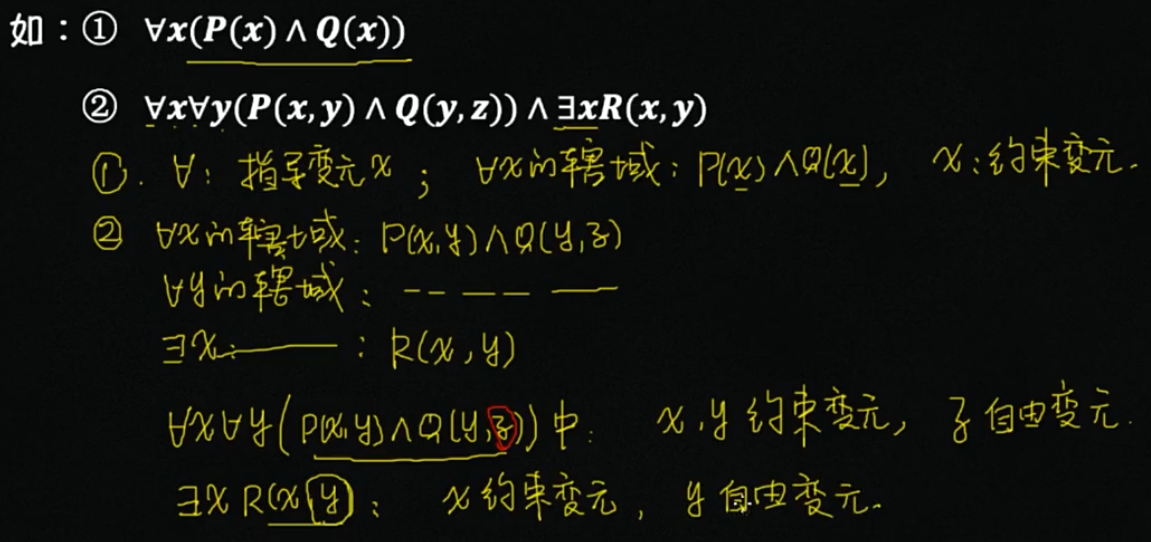 如：① ∀x(P(x) ∧ Q(x))
② ∀x∀y(P(x, y) ∧ Q(y, z)) ∧ ∃xR(x, y)
①. ∀: 指导变元x ; ∀x的辖域: P(x)∧Q(x), x:约束变元.
② ∀x的辖域: P(x,y)∧Q(y,z)
∀y的辖域: -- —— ——
∃x:——— : R(x,y)
∀x∀y(P(x,y)∧Q(y,z))中: x,y约束变元, z自由变元.
∃xR(x,y): x约束变元, y自由变元.